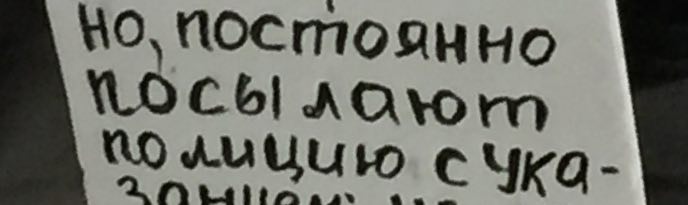 но, постоянно
посылают
полицию с ука-
занием: